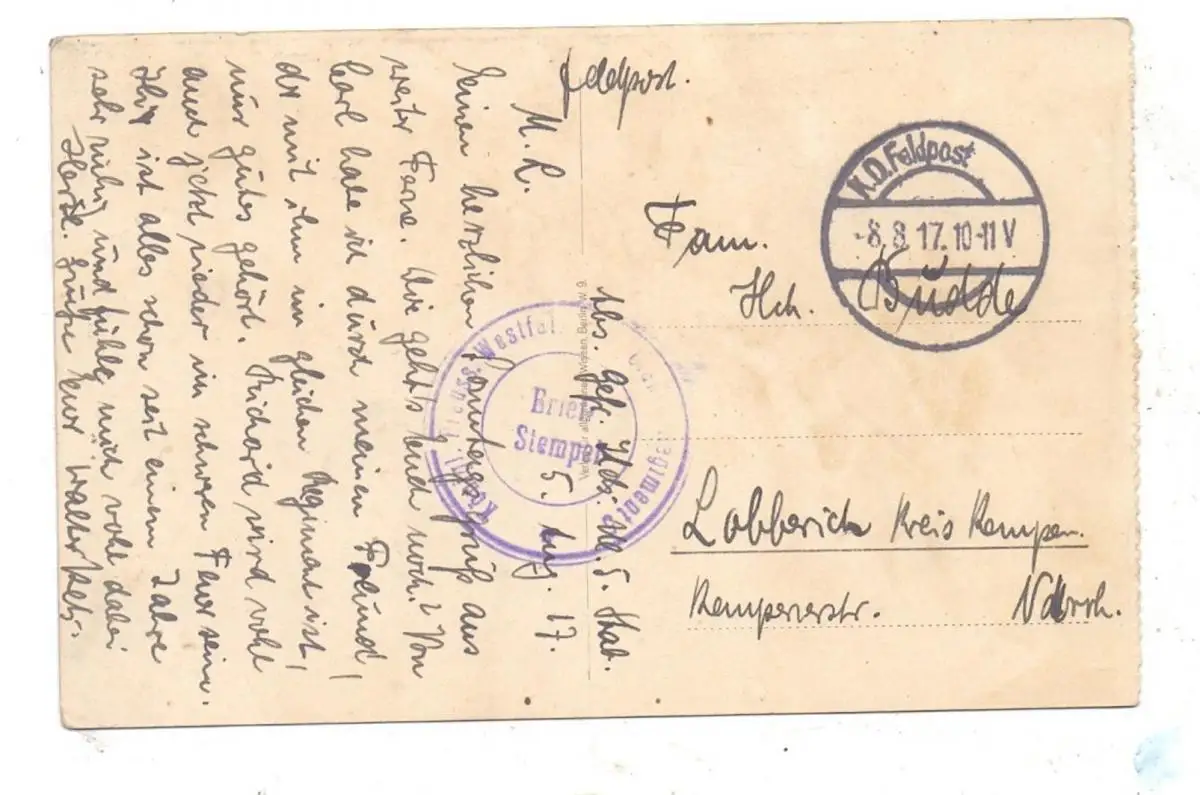 Feldpost.
K.D. Feldpost
-8.8.17. 10-11 V
Fam.
Hch. Büdde
Lobberich Kreis Kempen.
Kempenerstr. Ndrrh.
Abs. Gefr. 5.
Brief
Stempel
Westfäl.
Regiment
M. L. 5. Aug. 17.
Einen herzlichen Sonntagsgruß aus
weiter Ferne. Wie geht's Euch noch? Von
Karl habe ich durch meinen Freund,
der mit ihm im gleichen Regiment ist,
nur gutes gehört. Richard wird wohl
auch jetzt wieder in schweren Feuer sein.
Hier ist alles schon seit einem Jahre
sehr ruhig und fühle mich wohl dabei
Herzl. Grüße Euer Walter